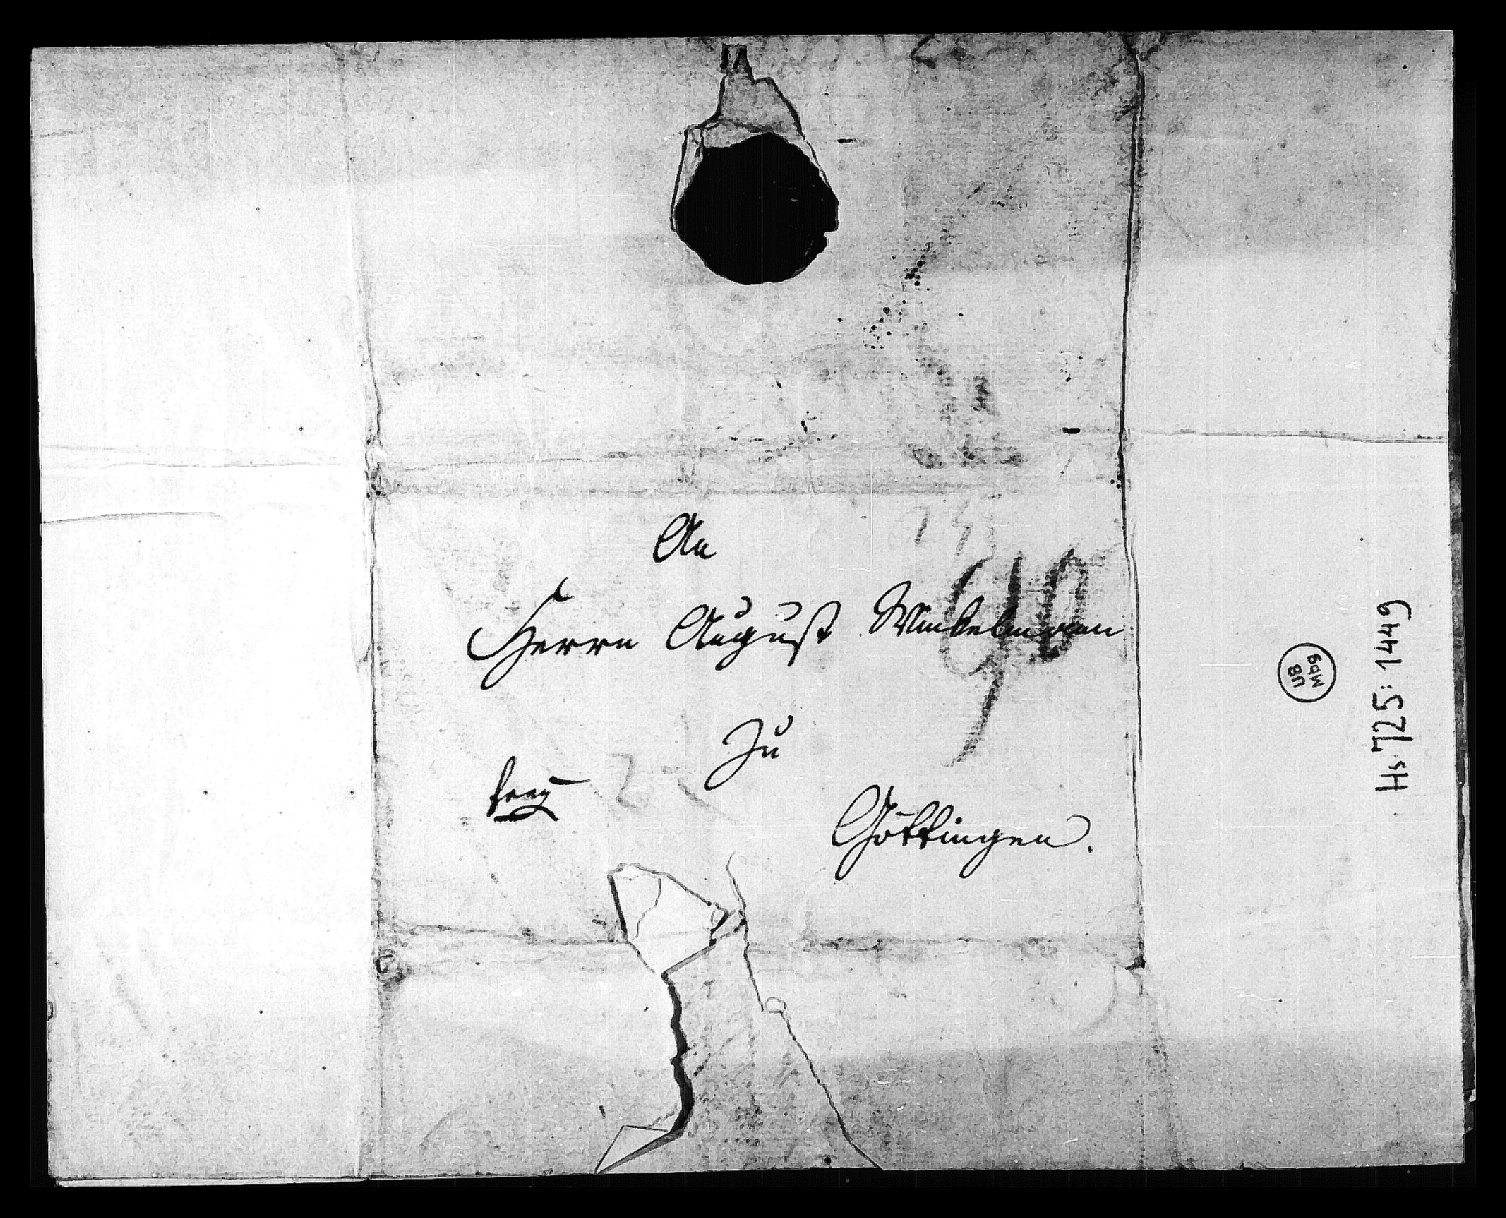 An
Herrn August Winkelmann
zu
frey
Göttingen.
Hs. 725: 1449
UB
Mbg